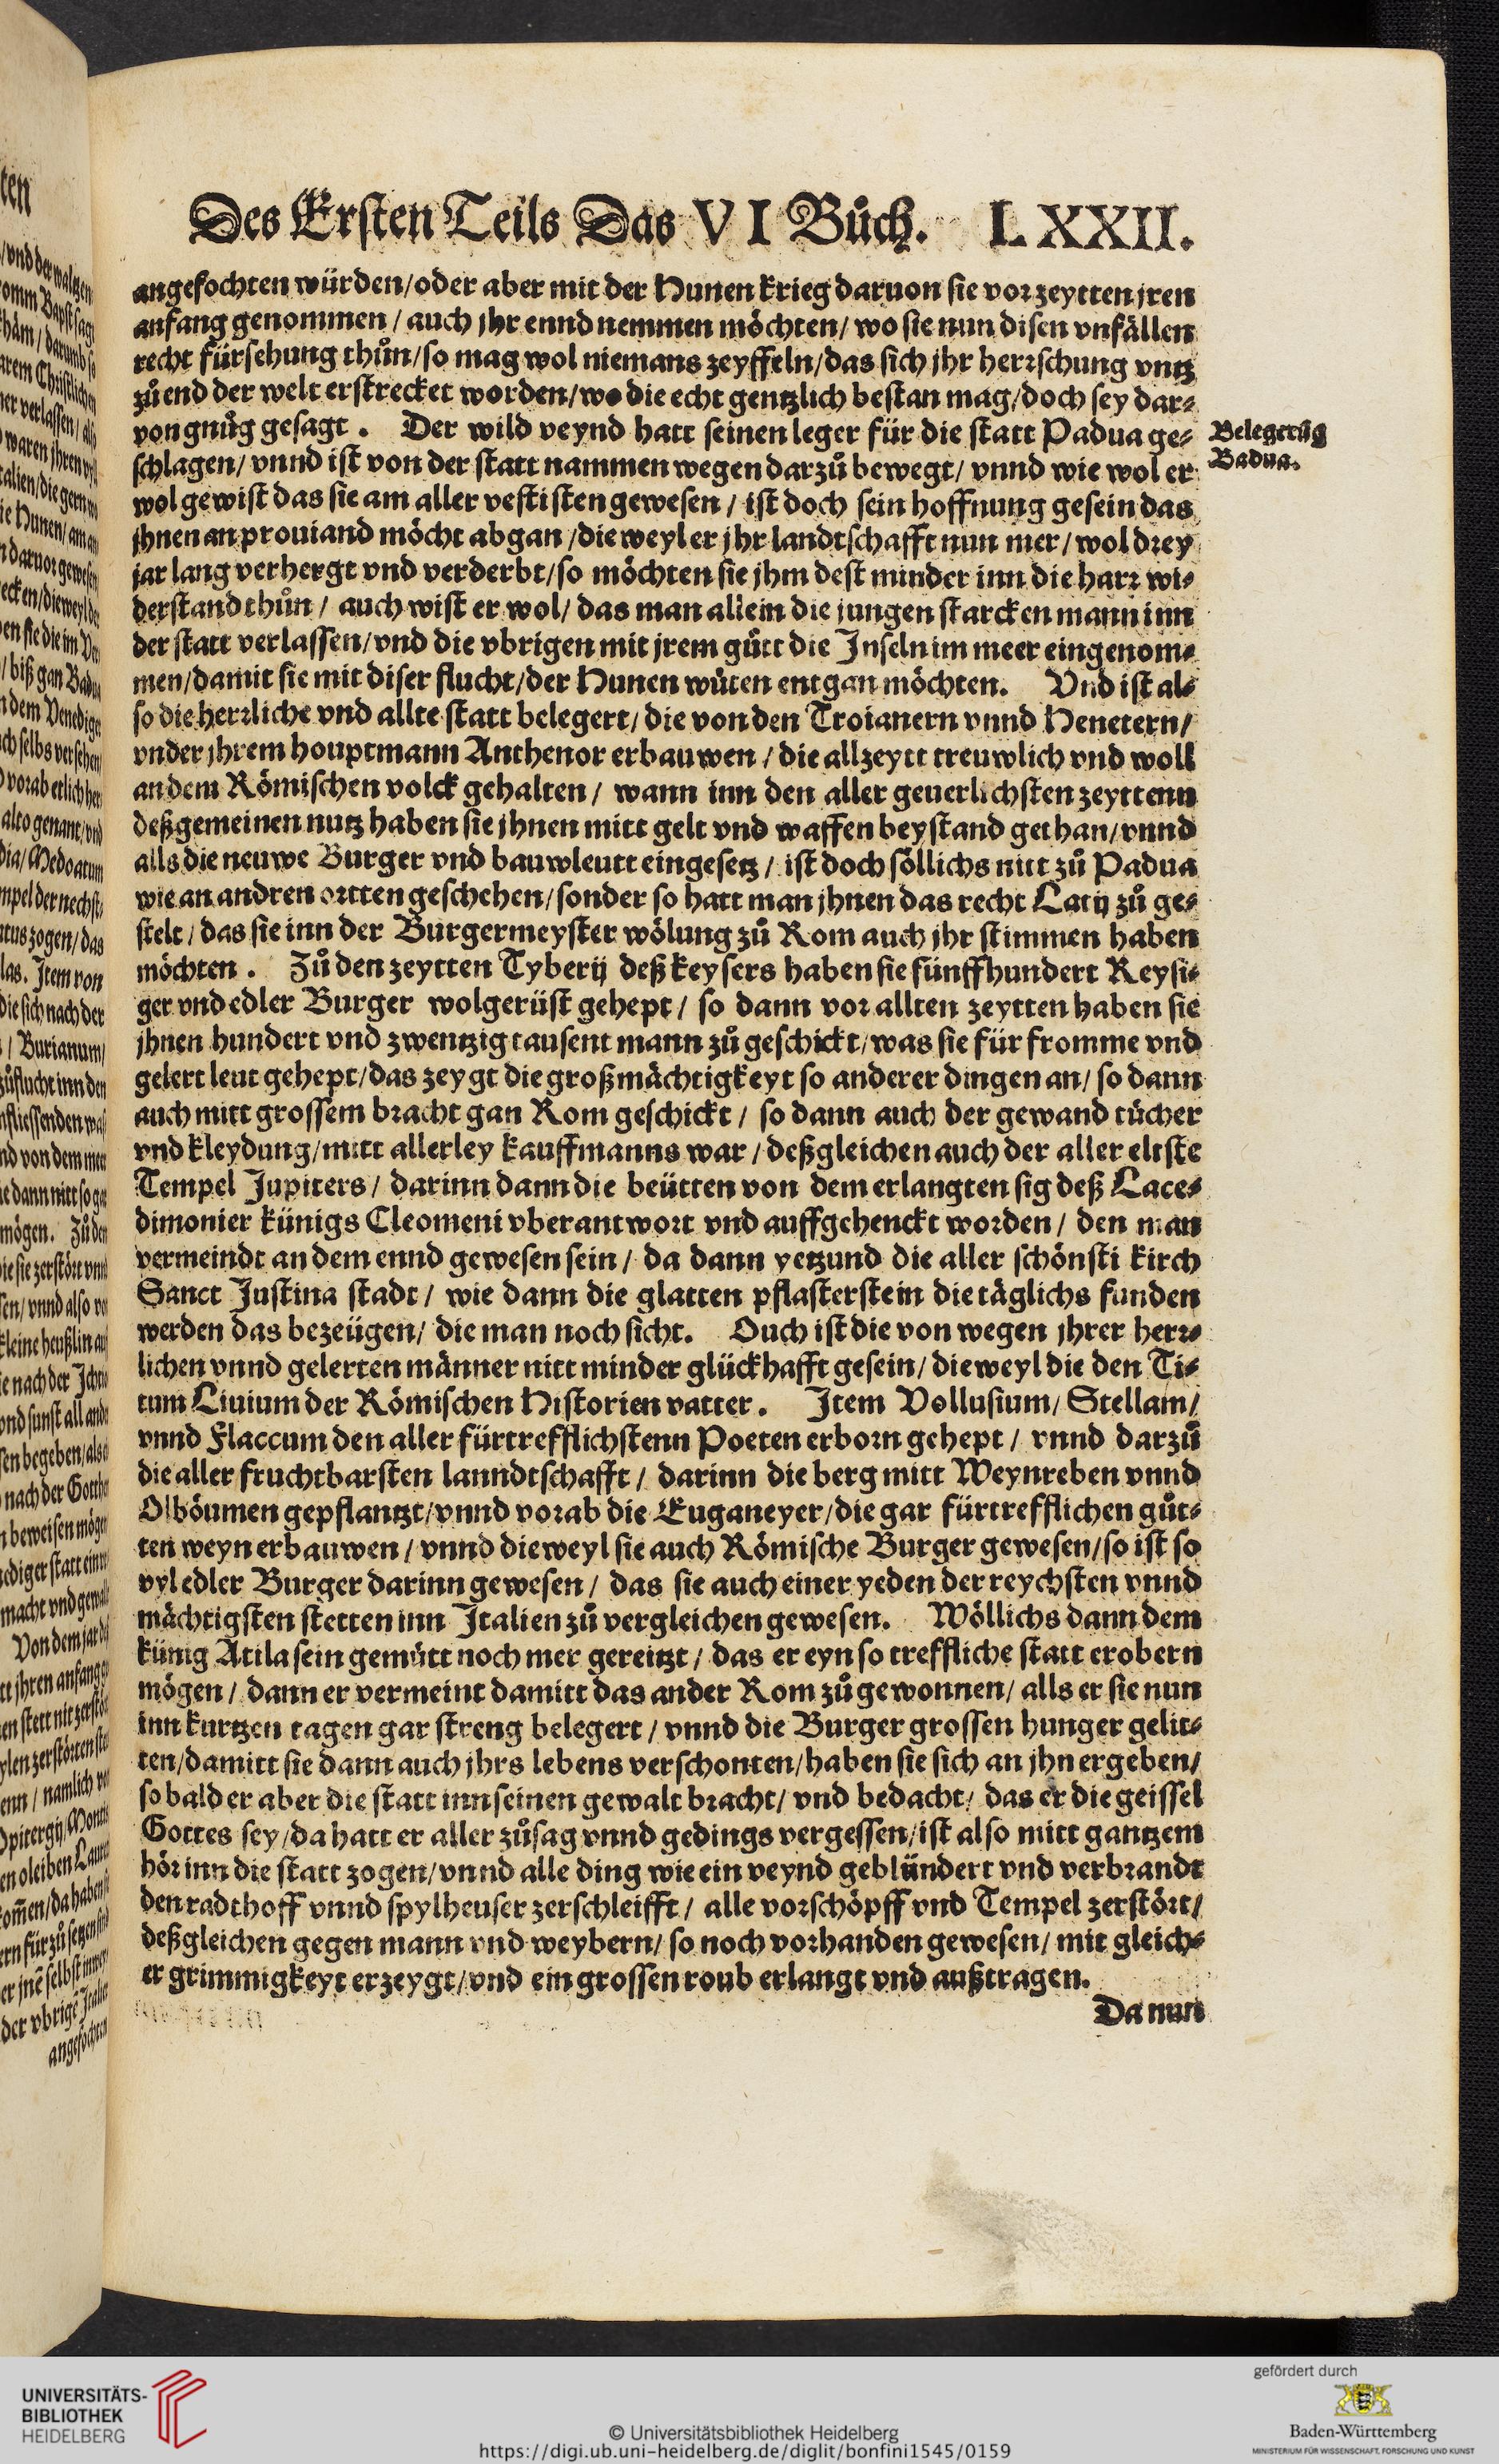 Des Ersten Teils Das VI Bůch. LXXII.
angefochten würden/oder aber mit der Hunen krieg daruon sie vor zeytten jren
anfang genommen / auch jhr ennd nemmen möchten/ wo sie nun disen vnfällen
recht fürsehung thůn/so mag wol niemans zeyffeln/das sich jhr herrschung vntz
zů end der welt erstrecket worden/wo die echt gentzlich bestan mag/doch sey dar⸗
von gnůg gesagt. Der wild veynd hatt seinen leger für die statt Padua ge⸗
Belegerũg
Badua.
schlagen/ vnnd ist von der statt nammen wegen darzů bewegt/ vnnd wie wol er
wol gewist das sie am aller vestisten gewesen / ist doch sein hoffnung gesein das
jhnen an prouiand möcht abgan /dieweyl er jhr landtschafft nun mer/ wol drey
jar lang verhergt vnd verderbt/so möchten sie jhm dest minder inn die harr wi⸗
derstand thůn / auch wist er wol/ das man allein die jungen starcken mann inn
der statt verlassen/vnd die vbrigen mit jrem gůtt die Inseln im meer eingenom⸗
men/damit sie mit diser flucht/der Hunen wůten entgan möchten. Vnd ist al⸗
so die herrliche vnd allte statt belegert/ die von den Troianern vnnd Henetern/
vnder jhrem houptmann Anthenor erbauwen / die allzeytt treuwlich vnd woll
an dem Römischen volck gehalten / wann inn den aller geuerlichsten zeyttenn
deß gemeinen nutz haben sie jhnen mitt gelt vnd waffen beystand gethan/vnnd
alls die neuwe Burger vnd bauwleutt eingesetz / ist doch söllichs nitt zů Padua
wie an andren ortten geschehen/sonder so hatt man jhnen das recht Latij zů ge⸗
stelt / das sie inn der Burgermeyster wölung zů Rom auch jhr stimmen haben
möchten. Zů den zeytten Tyberij deß keysers haben sie fünffhundert Reysi⸗
ger vnd edler Burger wolgerüst gehept / so dann vor allten zeytten haben sie
jhnen hundert vnd zwentzig tausent mann zů geschickt/was sie für fromme vnd
gelert leut gehept/das zeygt die großmächtigkeyt so anderer dingen an/ so dann
auch mitt grossem bracht gan Rom geschickt / so dann auch der gewand tücher
vnd kleydung/mitt allerley kauffmanns war / deßgleichen auch der aller eltste
Tempel Jupiters / darinn dann die beütten von dem erlangten sig deß Lace⸗
dimonier künigs Cleomeni vberantwort vnd auffgehenckt worden / den man
vermeindt an dem ennd gewesen sein / da dann yetzund die aller schönsti kirch
Sanct Justina stadt / wie dann die glatten pflasterstein die täglichs funden
werden das bezeügen/ die man noch sicht. Ouch ist die von wegen jhrer herr⸗
lichen vnnd gelerten männer nitt minder glückhafft gesein/ dieweyl die den Ti⸗
tum Liuium der Römischen Historien vatter. Item Vollusium/ Stellam/
vnnd Flaccum den aller fürtrefflichstenn Poeten erborn gehept / vnnd darzů
die aller fruchtbarsten lanndtschafft / darinn die berg mitt Weynreben vnnd
Olböumen gepflantzt/vnnd vorab die Euganeyer/die gar fürtrefflichen gůt⸗
ten weyn erbauwen / vnnd dieweyl sie auch Römische Burger gewesen/so ist so
vyl edler Burger darinn gewesen / das sie auch einer yeden der reychsten vnnd
mächtigsten stetten inn Italien zů vergleichen gewesen. Wöllichs dann dem
künig Atila sein gemütt noch mer gereitzt / das er eyn so treffliche statt erobern
mögen / dann er vermeint damitt das ander Rom zů gewonnen/ alls er sie nun
inn kurtzen tagen gar streng belegert / vnnd die Burger grossen hunger gelit⸗
ten/damitt sie dann auch jhrs lebens verschonten/haben sie sich an jhn ergeben/
so bald er aber die statt inn seinen gewalt bracht/ vnd bedacht/ das er die geissel
Gottes sey/da hatt er aller zůsag vnnd gedings vergessen/ist also mitt gantzem
hör inn die statt zogen/vnnd alle ding wie ein veynd geblündert vnd verbrandt
den radthoff vnnd spylheuser zerschleifft / alle vorschöpff vnd Tempel zerstört/
deßgleichen gegen mann vnd weybern/ so noch vorhanden gewesen/ mit gleich⸗
er grimmigkeyt erzeygt/vnd ein grossen roub erlangt vnd außtragen.
Da nun
UNIVERSITÄTS-
BIBLIOTHEK
HEIDELBERG
© Universitätsbibliothek Heidelberg
https://digi.ub.uni-heidelberg.de/diglit/bonfini1545/0159
gefördert durch
Baden-Württemberg
MINISTERIUM FÜR WISSENSCHAFT, FORSCHUNG UND KUNST